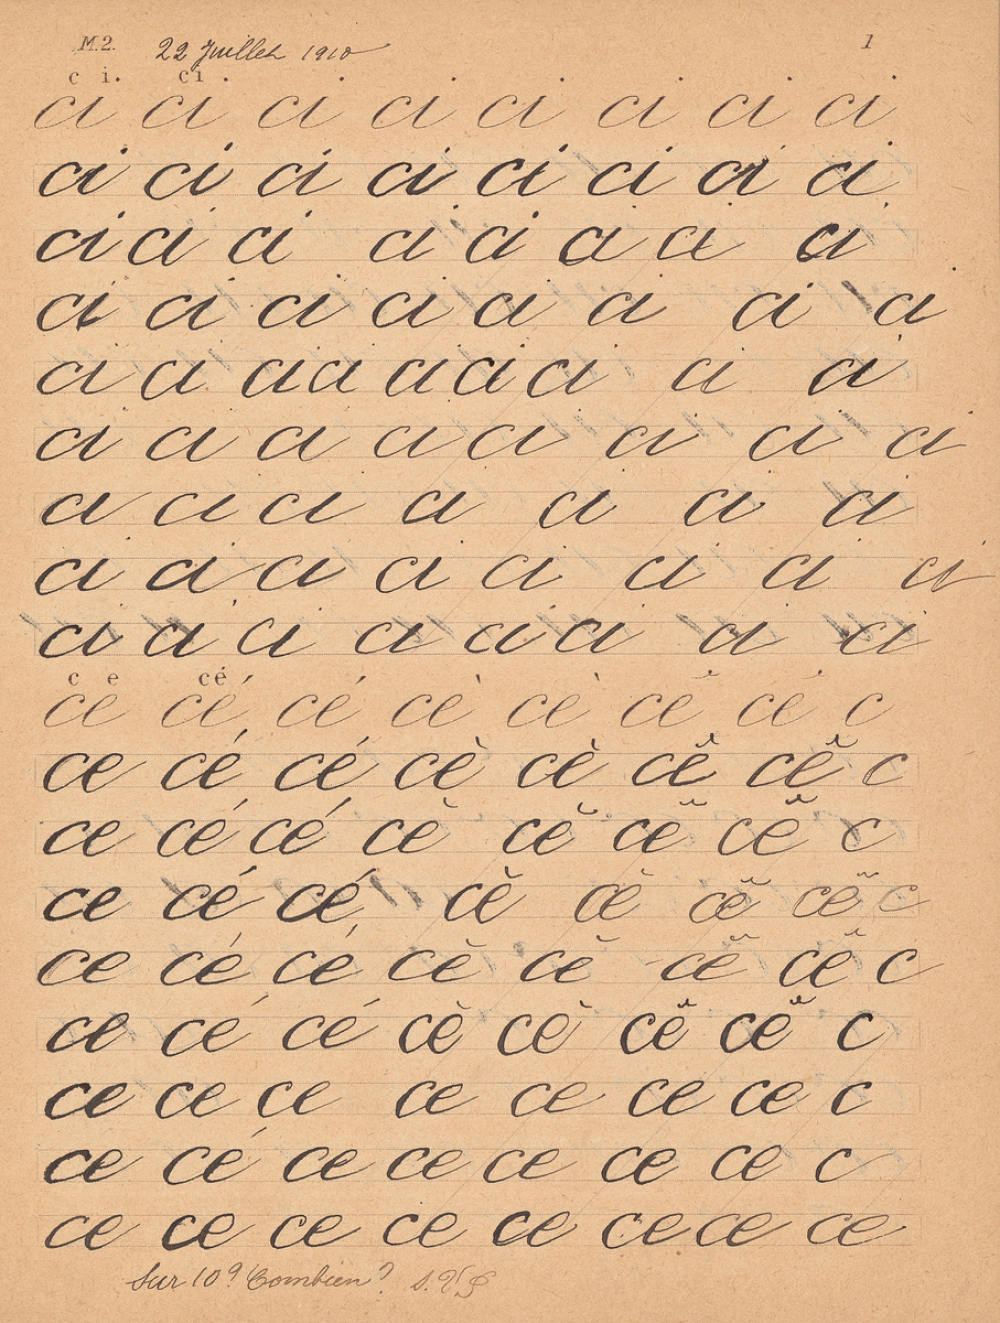 M.2. 22 Juillet 1910 1
c i. ci .
ci ci ci ci ci ci ci ci
ci ci ci ci ci ci ci ci
ci ci ci ci ci ci ci ci
ci ci ci ci ci ci ci ci
ci ci ci ci ci ci ci ci ci
ci ci ci ci ci ci ci ci
ci ci ci ci ci ci ci
ci ci ci ci ci ci ci ci
ci ci ci ci ci ci ci ci
c e cé
ce cé cé cè cè cê cê c
ce cé cé cè cè cê cê c
ce cé cé cè cè cê cê c
ce cé cé cè cè cê cê c
ce cé cé cè cè cê cê c
ce cé cé cè cè cê cê c
ce ce ce ce ce ce ce c
ce cé ce ce ce ce ce c
ce ce ce ce ce ce ce ce
Sur 10? Combien? S.V.P